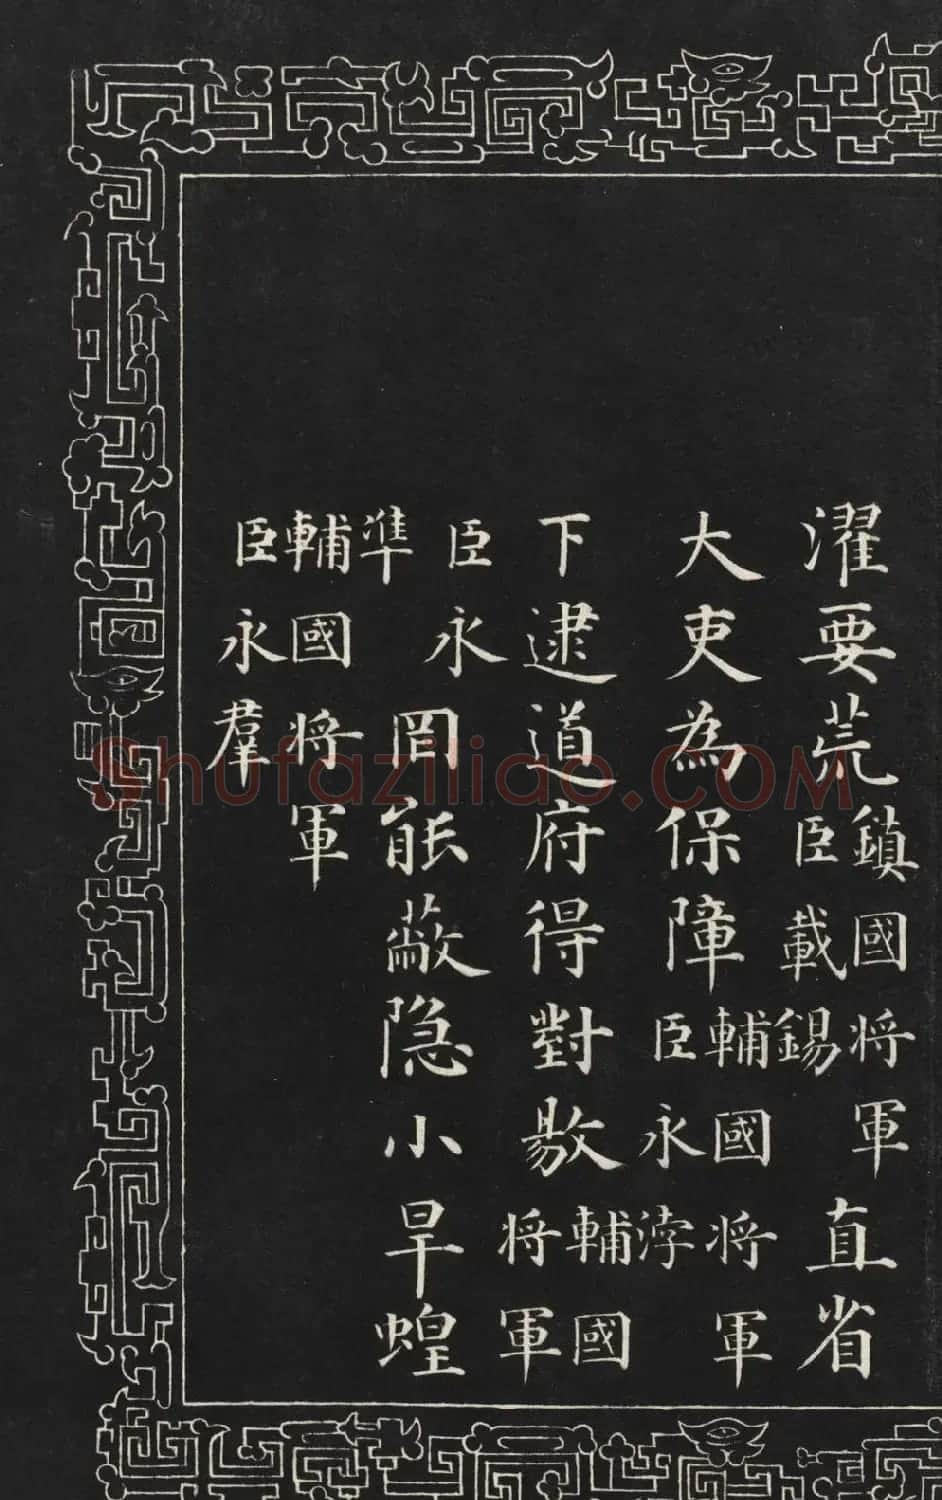 濯要荒鎮國将軍臣載錫直省
大吏為保障輔國将軍臣永
下逮道府得對敭輔國将軍
臣永準罔能蔽隐小旱蝗
輔國将軍臣永羣
Shufaziliao.COM